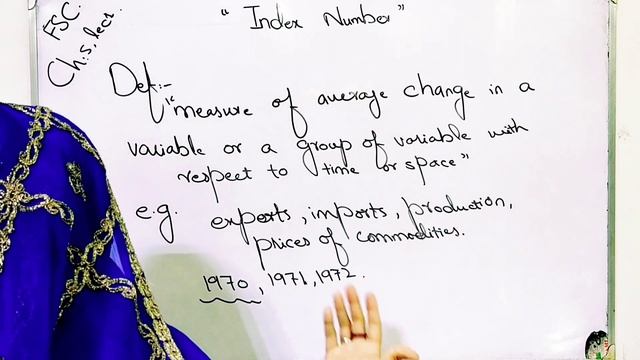 FSC.
Ch:5, lec1.
"Index Number"
Def:-
"measure of average change in a
variable or a group of variable with
respect to time or space"
e.g. exports, imports, production,
prices of commodities.
1970, 1971, 1972.